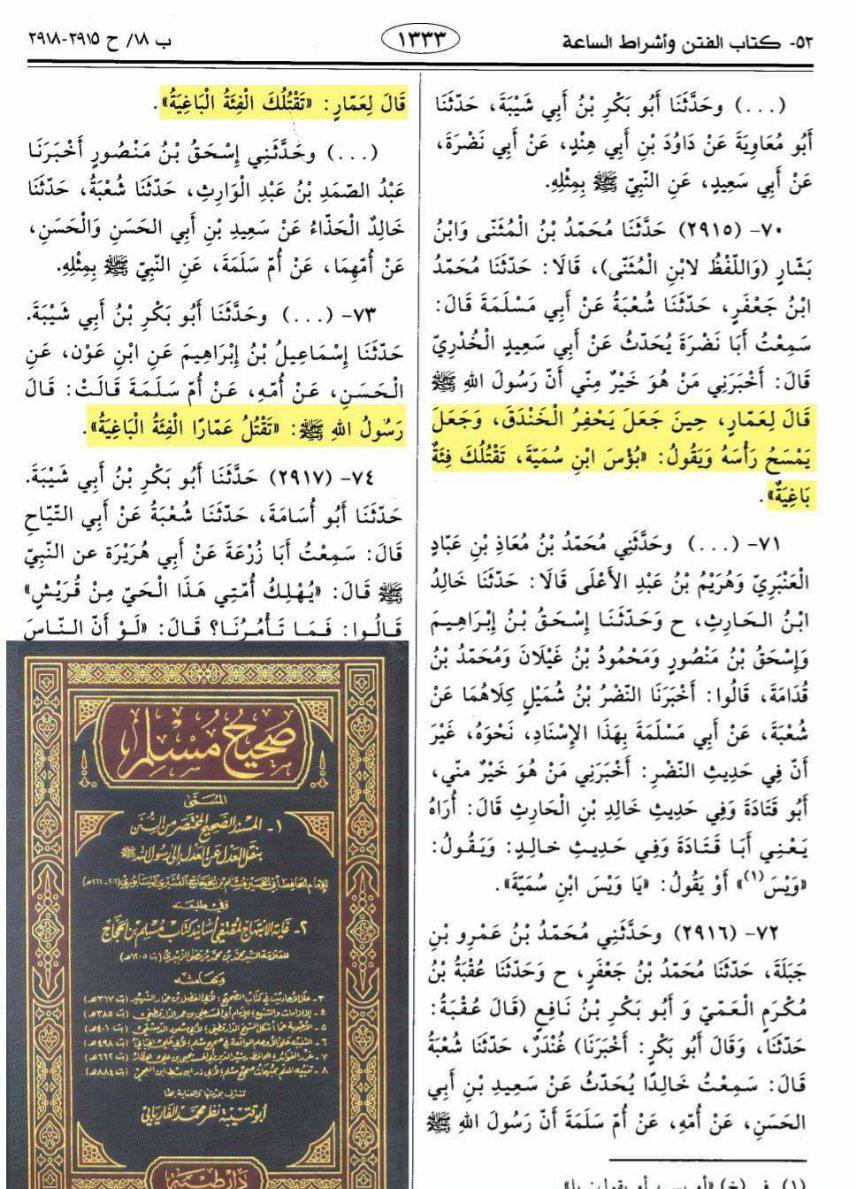 ٥٢- كتاب الفتن وأشراط الساعة
١٣٣٣
ب ١٨/ ح ٢٩١٥-٢٩١٨
(...) وحَدَّثَنَا أَبُو بَكْرِ بْنُ أَبِي شَيْبَةَ، حَدَّثَنَا
أَبُو مُعَاوِيَةَ عَنْ دَاوُدَ بْنِ أَبِي هِنْدٍ، عَنْ أَبِي نَضْرَةَ،
عَنْ أَبِي سَعِيدٍ، عَنِ النَّبِيِّ ﷺ بِمِثْلِهِ.
٧٠- (٢٩١٥) حَدَّثَنَا مُحَمَّدُ بْنُ الْمُثَنَّى وَابْنُ
بَشَّارٍ (وَاللَّفْظُ لابْنِ الْمُثَنَّى)، قَالَا: حَدَّثَنَا مُحَمَّدُ
ابْنُ جَعْفَرٍ، حَدَّثَنَا شُعْبَةُ عَنْ أَبِي مَسْلَمَةَ قَالَ:
سَمِعْتُ أَبَا نَضْرَةَ يُحَدِّثُ عَنْ أَبِي سَعِيدٍ الْخُدْرِيِّ
قَالَ: أَخْبَرَنِي مَنْ هُوَ خَيْرٌ مِنِّي أَنَّ رَسُولَ اللهِ ﷺ
قَالَ لِعَمَّارٍ، حِينَ جَعَلَ يَحْفِرُ الْخَنْدَقَ، وَجَعَلَ
يَمْسَحُ رَأْسَهُ وَيَقُولُ: «بُؤْسَ ابْنِ سُمَيَّةَ، تَقْتُلُكَ فِئَةٌ
بَاغِيَةٌ».
٧١- (...) وحَدَّثَنِي مُحَمَّدُ بْنُ مُعَاذِ بْنِ عَبَّادٍ
الْعَنْبَرِيُّ وَهُرَيْمُ بْنُ عَبْدِ الأَعْلَى قَالَا: حَدَّثَنَا خَالِدُ
ابْنُ الْحَارِثِ، ح وَحَدَّثَنَا إِسْحَقُ بْنُ إِبْرَاهِيمَ
وَإِسْحَقُ بْنُ مَنْصُورٍ وَمَحْمُودُ بْنُ غَيْلَانَ وَمُحَمَّدُ بْنُ
قُدَامَةَ، قَالُوا: أَخْبَرَنَا النَّضْرُ بْنُ شُمَيْلٍ كِلَاهُمَا عَنْ
شُعْبَةَ، عَنْ أَبِي مَسْلَمَةَ بِهَذَا الإِسْنَادِ، نَحْوَهُ، غَيْرَ
أَنَّ فِي حَدِيثِ النَّضْرِ: أَخْبَرَنِي مَنْ هُوَ خَيْرٌ مِنِّي،
أَبُو قَتَادَةَ وَفِي حَدِيثِ خَالِدِ بْنِ الْحَارِثِ قَالَ: أُرَاهُ
يَعْنِي أَبَا قَتَادَةَ وَفِي حَدِيثِ خالِدٍ: وَيَقُولُ:
«وَيْسَ(١)» أَوْ يَقُولُ: «يَا وَيْسَ ابْنِ سُمَيَّةَ».
٧٢- (٢٩١٦) وحَدَّثَنِي مُحَمَّدُ بْنُ عَمْرِو بْنِ
جَبَلَةَ، حَدَّثَنَا مُحَمَّدُ بْنُ جَعْفَرٍ، ح وَحَدَّثَنَا عُقْبَةُ بْنُ
مُكْرَمٍ الْعَمِّيُّ وَ أَبُو بَكْرِ بْنُ نَافِعٍ (قَالَ عُقْبَةُ:
حَدَّثَنَا، وَقَالَ أَبُو بَكْرٍ: أَخْبَرَنَا) غُنْدَرٌ، حَدَّثَنَا شُعْبَةُ
قَالَ: سَمِعْتُ خَالِدًا يُحَدِّثُ عَنْ سَعِيدِ بْنِ أَبِي
الحَسَنِ، عَنْ أُمِّهِ، عَنْ أُمِّ سَلَمَةَ أَنَّ رَسُولَ اللهِ ﷺ
قَالَ لِعَمَّارٍ: «تَقْتُلُكَ الْفِئَةُ الْبَاغِيَةُ».
(...) وحَدَّثَنِي إِسْحَقُ بْنُ مَنْصُورٍ أَخْبَرَنَا
عَبْدُ الصَّمَدِ بْنُ عَبْدِ الْوَارِثِ، حَدَّثَنَا شُعْبَةُ، حَدَّثَنَا
خَالِدٌ الْحَذَّاءُ عَنْ سَعِيدِ بْنِ أَبِي الحَسَنِ وَالْحَسَنِ،
عَنْ أُمِّهِمَا، عَنْ أُمِّ سَلَمَةَ، عَنِ النَّبِيِّ ﷺ بِمِثْلِهِ.
٧٣- (...) وحَدَّثَنَا أَبُو بَكْرِ بْنُ أَبِي شَيْبَةَ.
حَدَّثَنَا إِسْمَاعِيلُ بْنُ إِبْرَاهِيمَ عَنِ ابْنِ عَوْن، عَنِ
الْحَسَنِ، عَنْ أُمِّهِ، عَنْ أُمِّ سَلَمَةَ قَالَتْ: قَالَ
رَسُولُ اللهِ ﷺ: «تَقْتُلُ عَمَّارًا الْفِئَةُ الْبَاغِيَةُ».
٧٤- (٢٩١٧) حَدَّثَنَا أَبُو بَكْرِ بْنُ أَبِي شَيْبَةَ.
حَدَّثَنَا أَبُو أُسَامَةَ، حَدَّثَنَا شُعْبَةُ عَنْ أَبِي التَّيَّاحِ
قَالَ: سَمِعْتُ أَبَا زُرْعَةَ عَنْ أَبِي هُرَيْرَة عن النَّبِيِّ
ﷺ قَالَ: «يُهْلِكُ أُمَّتِي هَذَا الْحَيُّ مِنْ قُرَيْشٍ»
قَالُوا: فَمَا تَأْمُرُنَا؟ قَالَ: «لَوْ أَنَّ النَّاسَ
صحيح مسلم
المسمى
١- المسند الصحيح المختصر من السنن
بنقل العدل عن العدل إلى رسول الله ﷺ
للإمام الحافظ أبي الحسين مسلم بن الحجاج القشيري النيسابوري (٢٠٦-٢٦١هـ)
وفي طليعته
٢- غاية الابتهاج لمقتفي أسانيد كتاب مسلم بن الحجاج
للعلامة السيد محمد بن محمد مرتضى الزبيدي (ت ١٢٠٥هـ)
وبهامشه
أبو قتيبة نظر محمد الفاريابي
دار طيبة